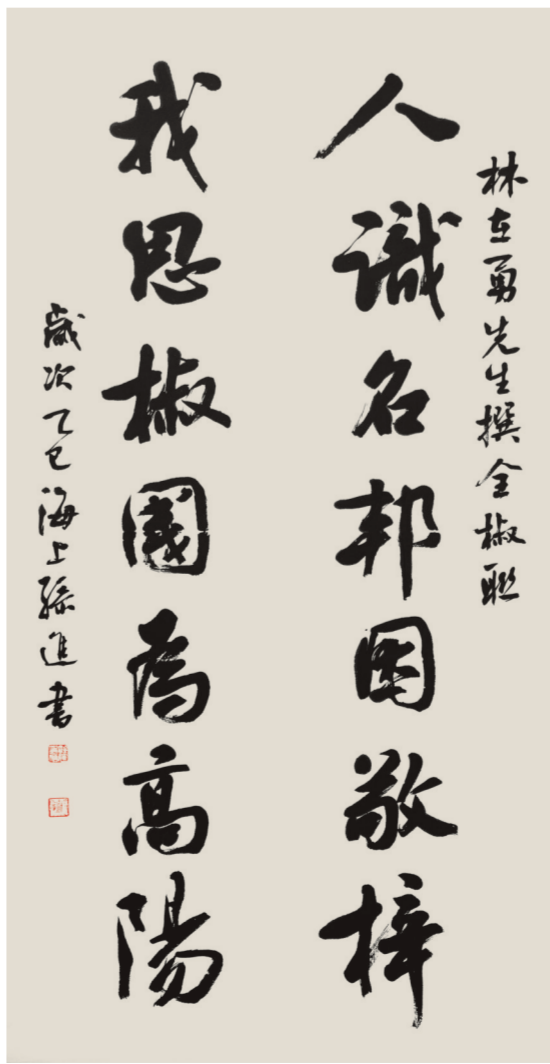 林在勇先生撰全椒联
人識名邦因敬梓
我思椒國為高陽
歲次乙巳海上孫進書